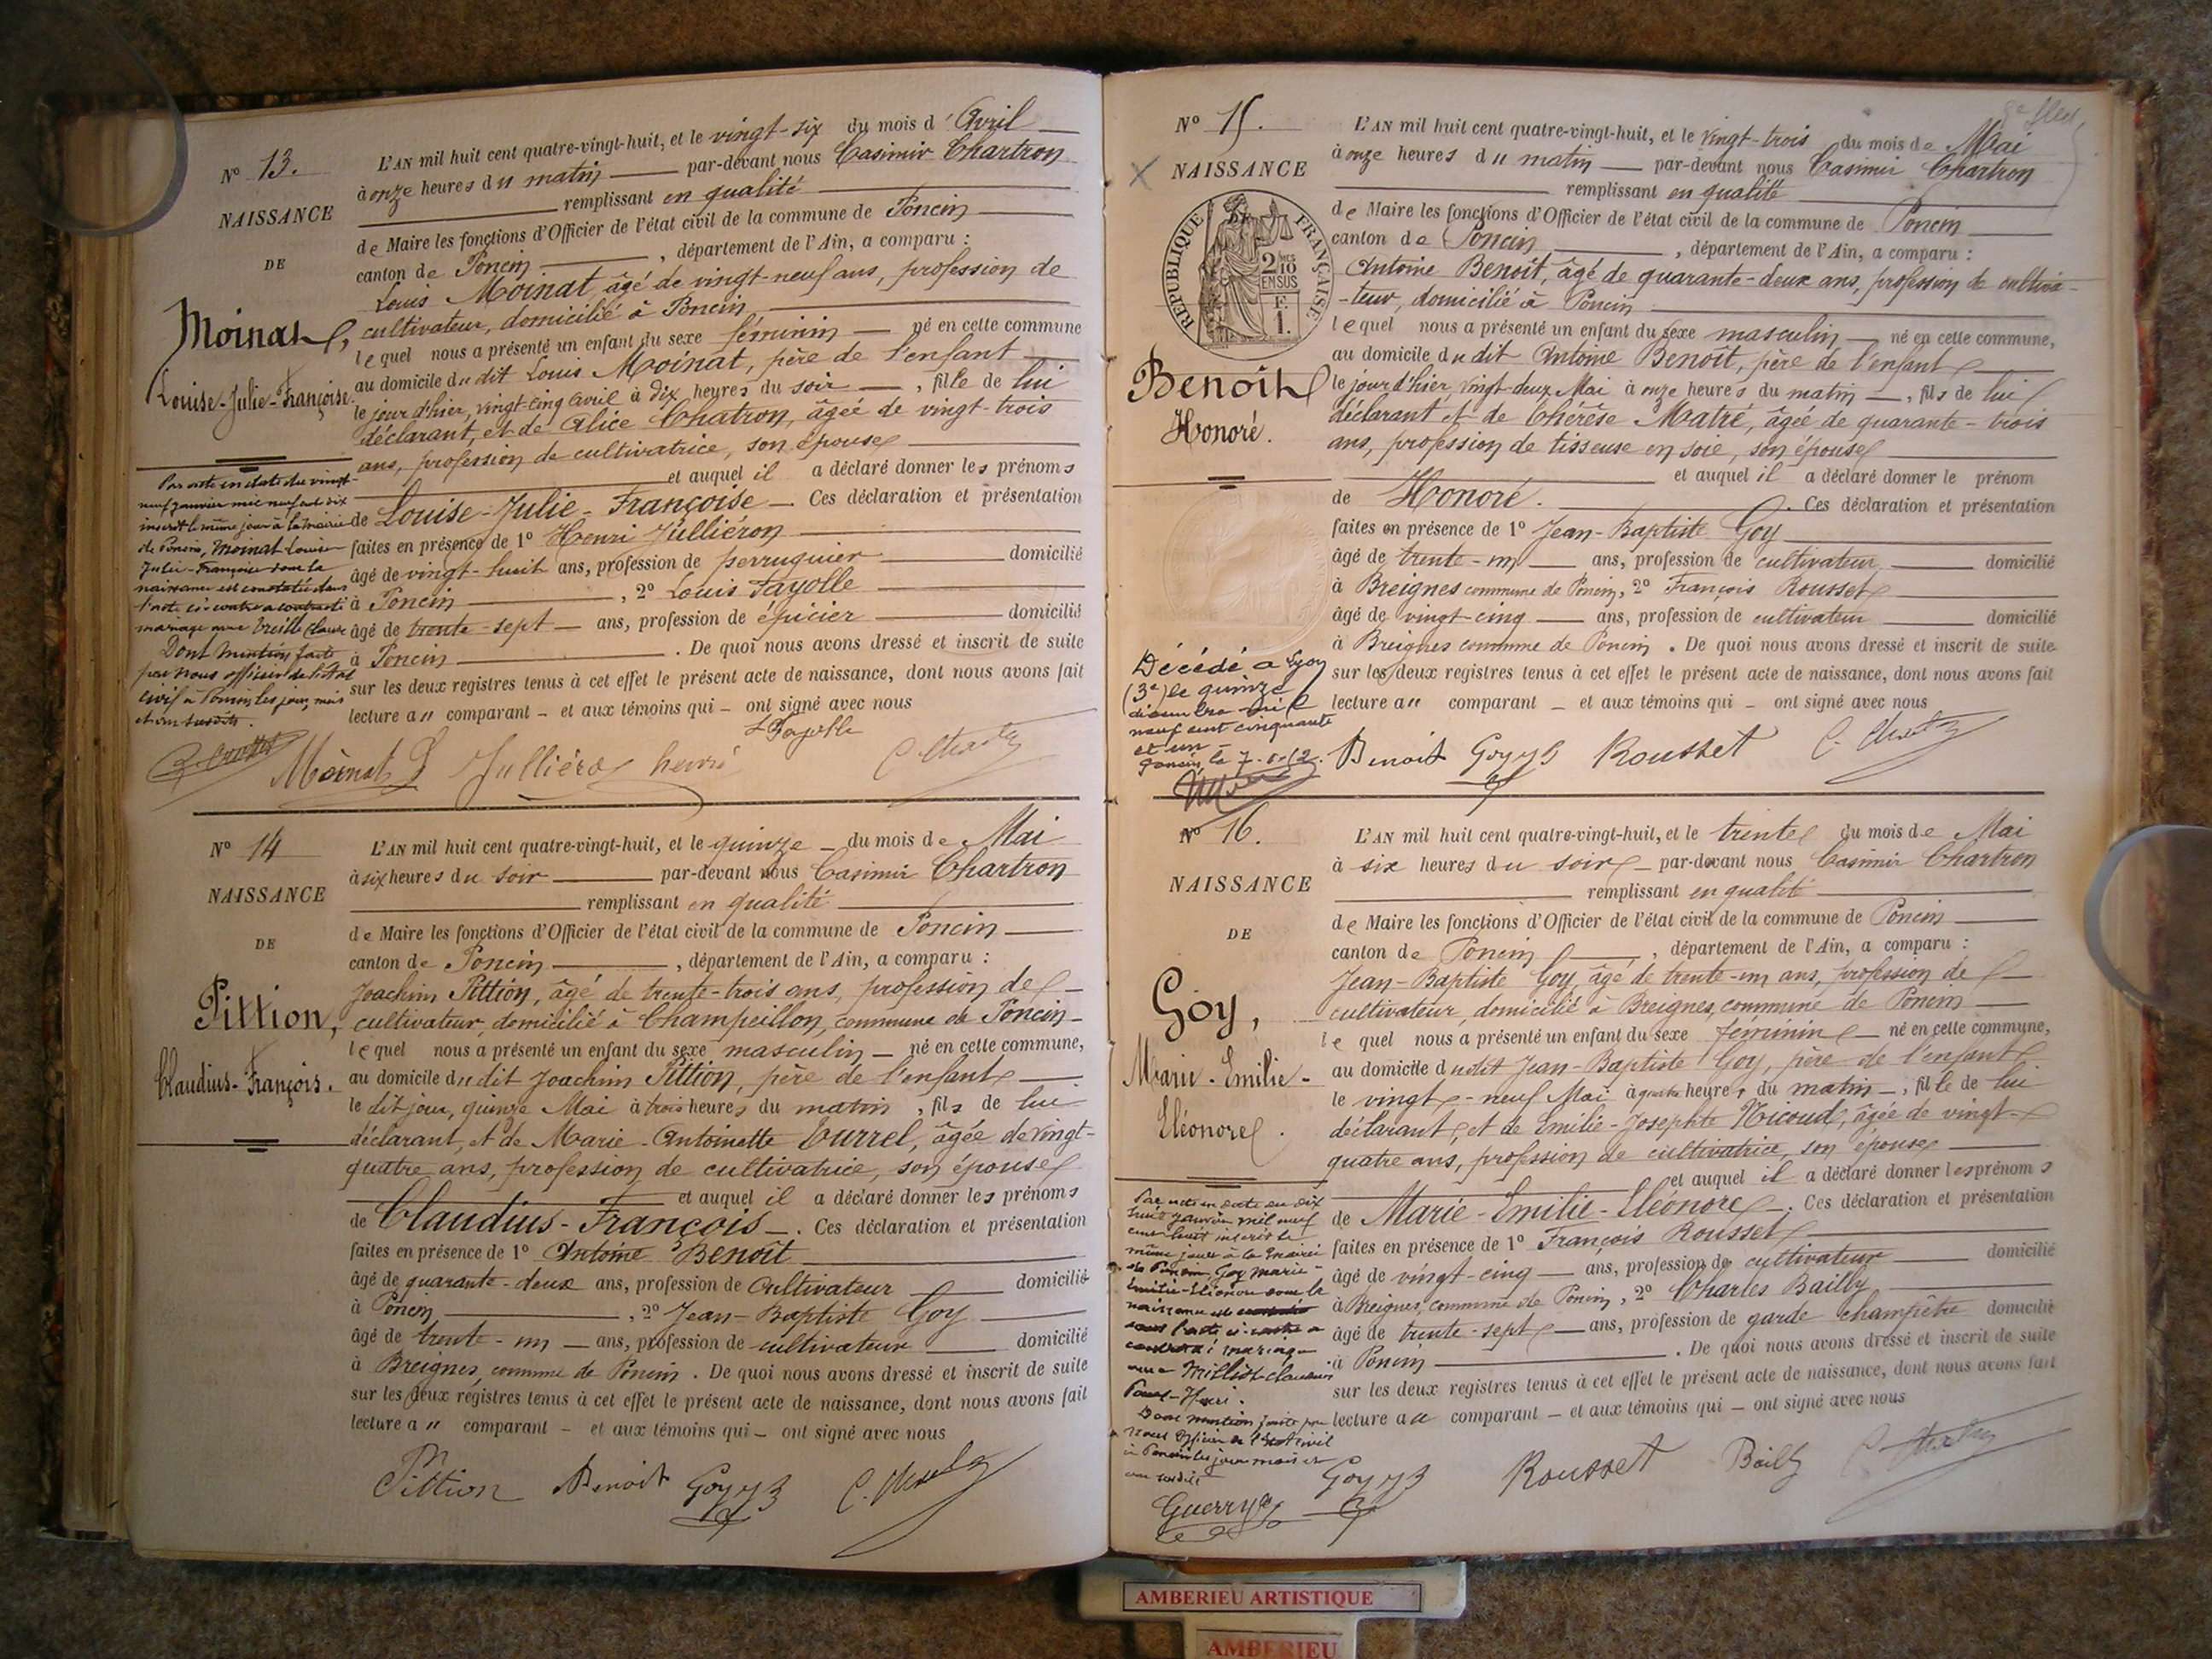 N° 13.
NAISSANCE
DE
Moinat,
Louise-Julie-Françoise.
L'AN mil huit cent quatre-vingt-huit, et le vingt-six du mois d'Avril
à onze heures du matin par-devant nous Casimir Chartron
remplissant en qualité
de Maire les fonctions d'Officier de l'état civil de la commune de Poncin
canton de Poncin, département de l'Ain, a comparu :
Louis Moinat, âgé de vingt-neuf ans, profession de
cultivateur, domicilié à Poncin
lequel nous a présenté un enfant du sexe féminin né en cette commune
au domicile du dit Louis Moinat, père de l'enfant
le jour d'hier, vingt-cinq Avril à dix heures du soir, fille de lui
déclarant, et de Alice Chatron, âgée de vingt-trois
ans, profession de cultivatrice, son épouse
et auquel il a déclaré donner les prénoms
de Louise-Julie-Françoise Ces déclaration et présentation
faites en présence de 1° Henri Julliéron
âgé de vingt-huit ans, profession de perruquier domicilié
à Poncin, 2° Louis Fayolle
âgé de trente-sept ans, profession de épicier domicilié
à Poncin. De quoi nous avons dressé et inscrit de suite
sur les deux registres tenus à cet effet le présent acte de naissance, dont nous avons fait
lecture au comparant et aux témoins qui ont signé avec nous
Par acte en date du vingt-
neuf janvier mil neuf cent dix
inscrit le même jour à la mairie
de Poncin, Moinat Louise
Julie-Françoise dont la
naissance est constatée dans
l'acte ci-contre a contracté
mariage avec
Dont mention faite
par nous officier de l'état
civil à Poncin les jour, mois
et an susdits.
L Fayolle
Moinat L Julliéron henri C. Chartron
N° 14
NAISSANCE
DE
Pittion,
Claudius-François.
L'AN mil huit cent quatre-vingt-huit, et le quinze du mois de Mai
à six heures du soir par-devant nous Casimir Chartron
remplissant en qualité
de Maire les fonctions d'Officier de l'état civil de la commune de Poncin
canton de Poncin, département de l'Ain, a comparu :
Joachim Pittion, âgé de trente-trois ans, profession de
cultivateur, domicilié à Champeillon, commune de Poncin
lequel nous a présenté un enfant du sexe masculin né en cette commune,
au domicile du dit Joachim Pittion, père de l'enfant
le dit jour, quinze Mai à trois heures du matin, fils de lui
déclarant, et de Marie-Antoinette Currel, âgée de vingt-
quatre ans, profession de cultivatrice, son épouse
et auquel il a déclaré donner les prénoms
de Claudius-François. Ces déclaration et présentation
faites en présence de 1° Antoine Benoît
âgé de quarante-deux ans, profession de Cultivateur domicilié
à Poncin, 2° Jean-Baptiste Goy
âgé de trente-un ans, profession de cultivateur domicilié
à Breignes, commune de Poncin. De quoi nous avons dressé et inscrit de suite
sur les deux registres tenus à cet effet le présent acte de naissance, dont nous avons fait
lecture au comparant et aux témoins qui ont signé avec nous
Pittion Benoit Goy C. Chartron
N° 15.
NAISSANCE
REPUBLIQUE FRANÇAISE
2/10 EN SUS
F. 1.
Benoît
Honoré.
L'AN mil huit cent quatre-vingt-huit, et le vingt-trois du mois de Mai
à onze heures du matin par-devant nous Casimir Chartron
remplissant en qualité
de Maire les fonctions d'Officier de l'état civil de la commune de Poncin
canton de Poncin, département de l'Ain, a comparu :
Antoine Benoît, âgé de quarante-deux ans, profession de cultiva-
-teur, domicilié à Poncin
lequel nous a présenté un enfant du sexe masculin né en cette commune,
au domicile du dit Antoine Benoît, père de l'enfant
le jour d'hier, vingt-deux Mai à onze heures du matin, fils de lui
déclarant et de Thérèse Matré, âgée de quarante-trois
ans, profession de tisseuse en soie, son épouse
et auquel il a déclaré donner le prénom
de Honoré. Ces déclaration et présentation
faites en présence de 1° Jean-Baptiste Goy
âgé de trente-un ans, profession de cultivateur domicilié
à Breignes commune de Poncin, 2° François Rousset
âgé de vingt-cinq ans, profession de cultivateur domicilié
à Breignes commune de Poncin. De quoi nous avons dressé et inscrit de suite
sur les deux registres tenus à cet effet le présent acte de naissance, dont nous avons fait
lecture au comparant et aux témoins qui ont signé avec nous
Décédé à Lyon
(3e) le quinze
décembre mil
neuf cent cinquante
et un
Poncin, le
Benoit Goy Rousset C. Chartron
N° 16.
NAISSANCE
DE
Goy,
Marie-Emilie-
Eléonore.
L'AN mil huit cent quatre-vingt-huit, et le trente du mois de Mai
à six heures du soir par-devant nous Casimir Chartron
remplissant en qualité
de Maire les fonctions d'Officier de l'état civil de la commune de Poncin
canton de Poncin, département de l'Ain, a comparu :
Jean-Baptiste Goy, âgé de trente-un ans, profession de
cultivateur, domicilié à Breignes, commune de Poncin
lequel nous a présenté un enfant du sexe féminin né en cette commune,
au domicile dudit Jean-Baptiste Goy, père de l'enfant
le vingt-neuf Mai à quatre heures du matin, fille de lui
déclarant, et de Emilie-Josephte Nicoud, âgée de vingt-
quatre ans, profession de cultivatrice, son épouse
et auquel il a déclaré donner les prénoms
de Marie-Emilie-Eléonore. Ces déclaration et présentation
faites en présence de 1° François Rousset
âgé de vingt-cinq ans, profession de cultivateur domicilié
à Breignes, commune de Poncin, 2° Charles Bailly
âgé de trente-sept ans, profession de garde champêtre domicilié
à Poncin. De quoi nous avons dressé et inscrit de suite
sur les deux registres tenus à cet effet le présent acte de naissance, dont nous avons fait
lecture au comparant et aux témoins qui ont signé avec nous
Par acte en date du dix
huit janvier mil neuf
cent huit inscrit le
même jour à la mairie
de Poncin Goy Marie-
Emilie-Eléonore dont la
naissance est constatée
dans l'acte ci-contre a
contracté mariage
avec Milliot Claudius
Henri.
Dont mention faite par
nous Officier de l'Etat civil
à Poncin les jour mois et
an susdits
Guerry
Goy Rousset Bailly C. Chartron
AMBERIEU ARTISTIQUE
AMBERIEU